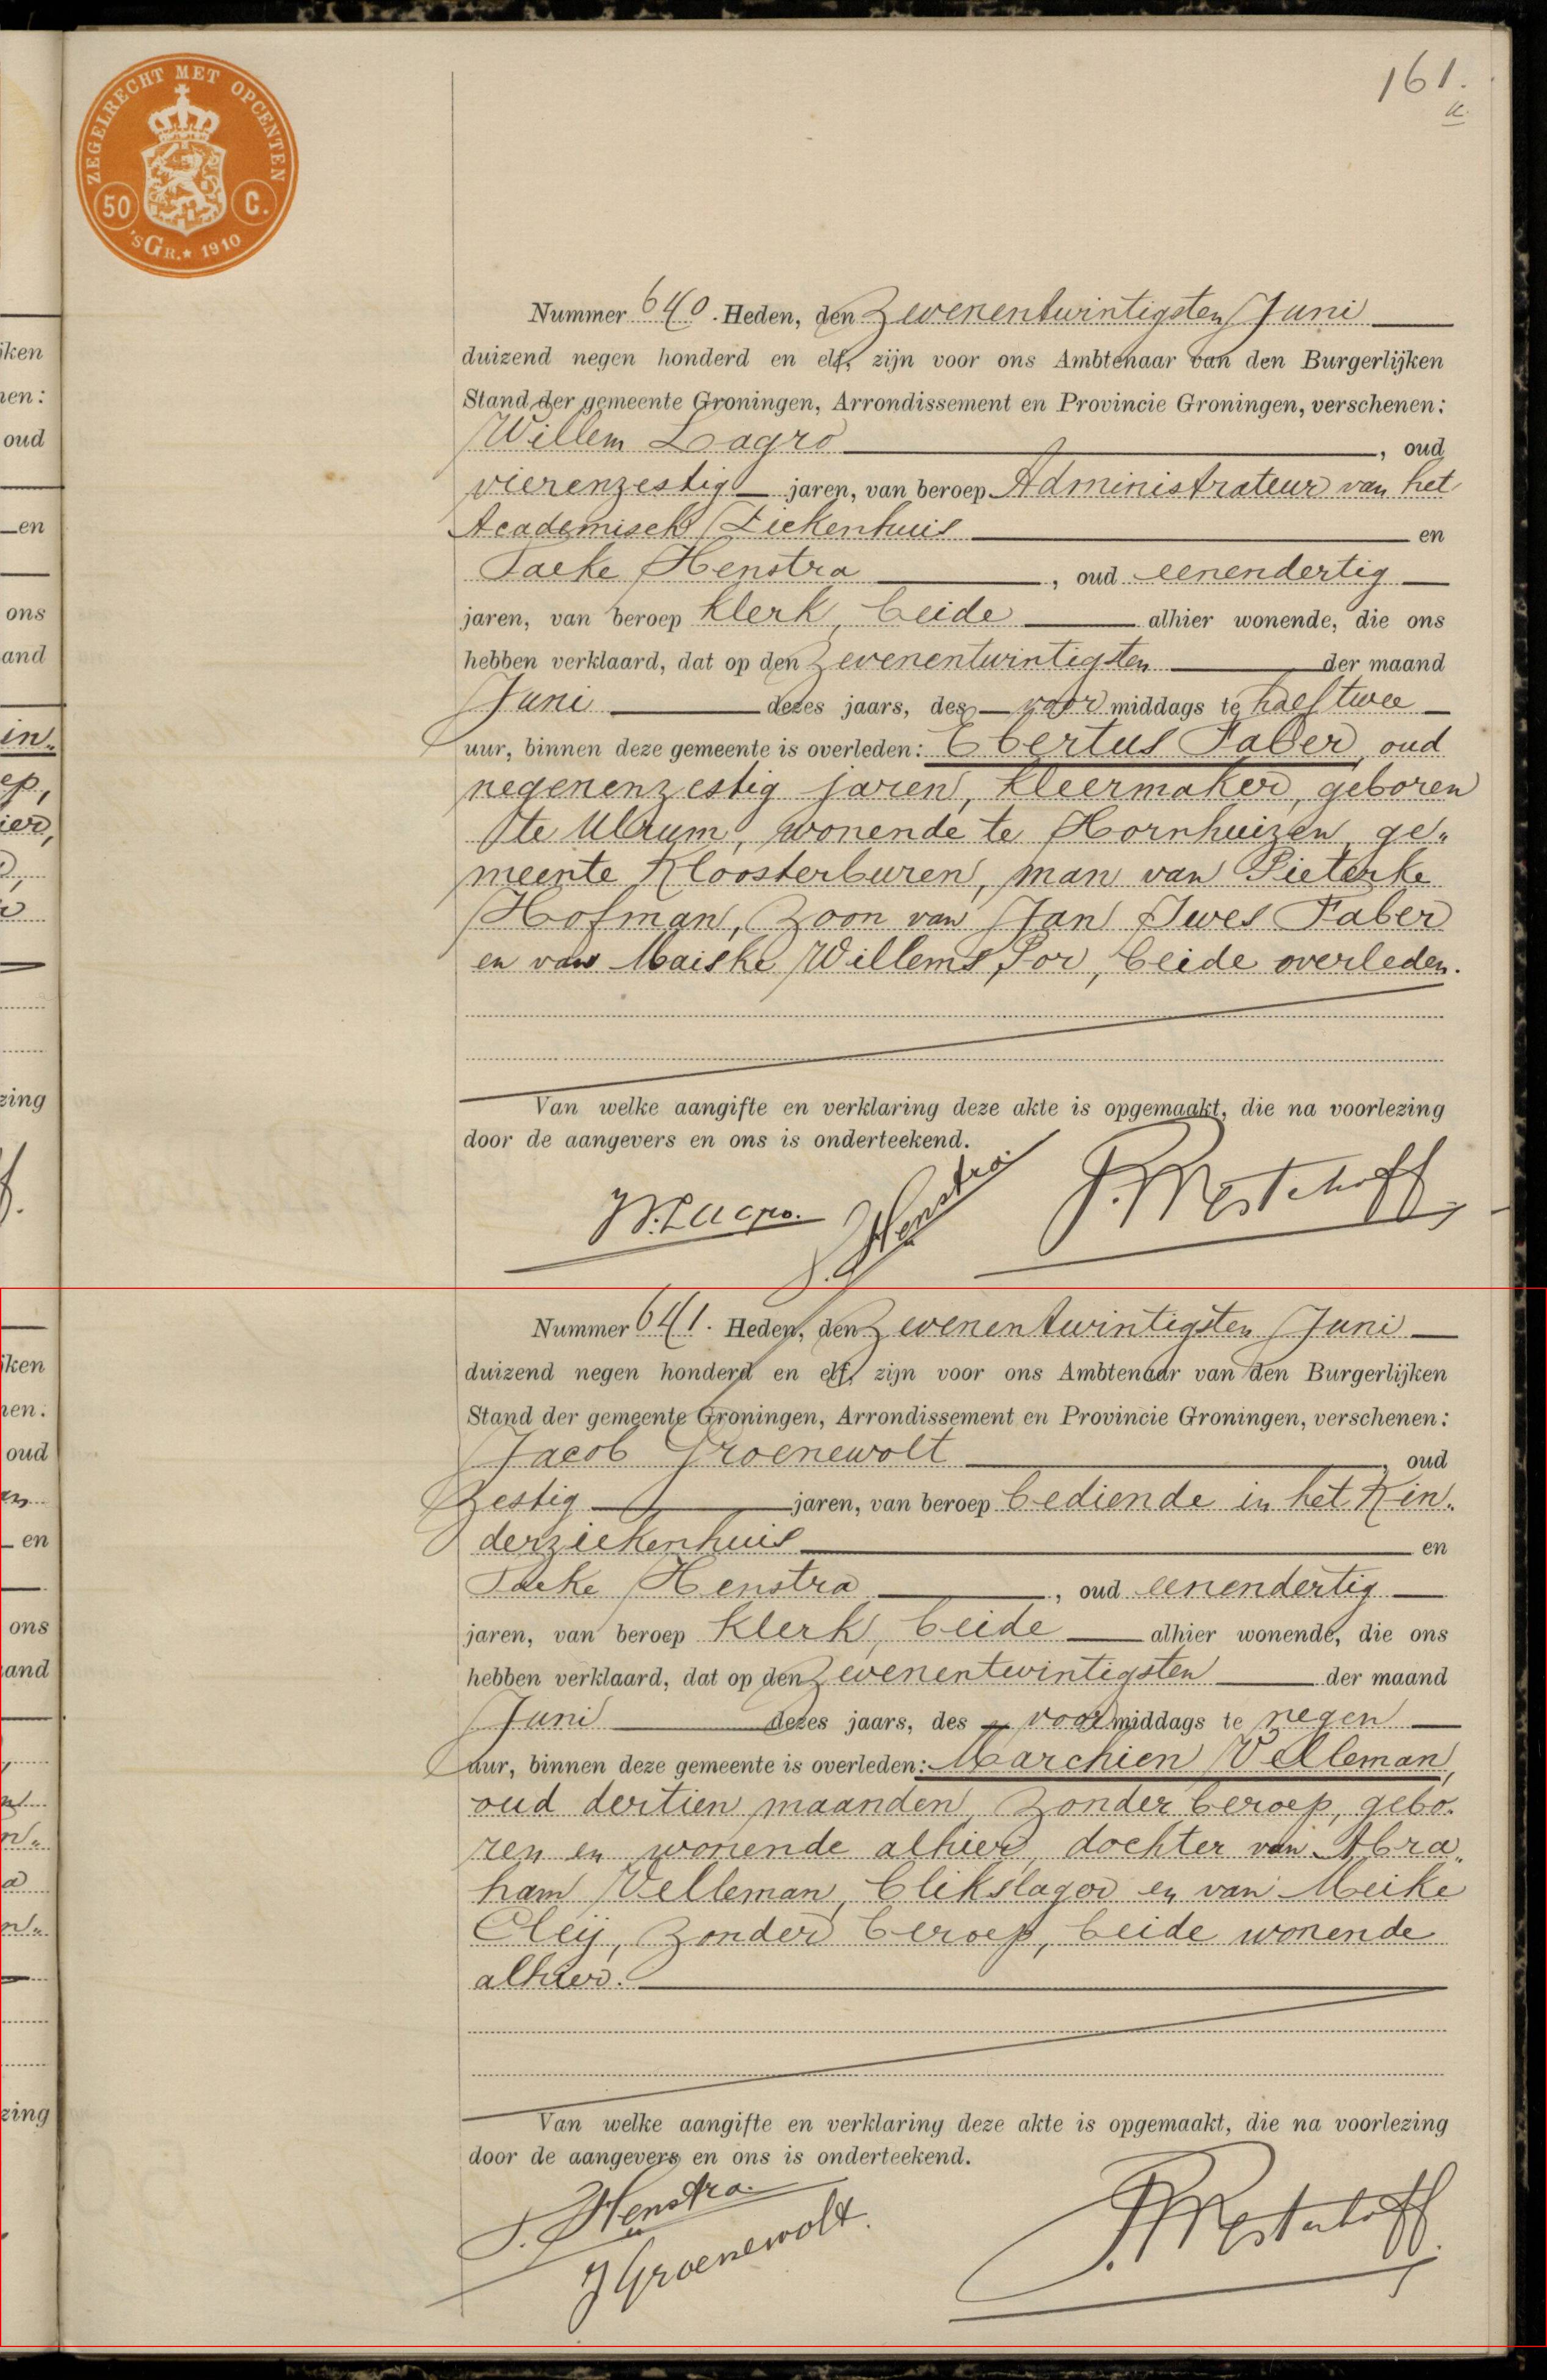 161.
ZEGELRECHT MET OPCENTEN
50 C.
'sGr.★ 1910
Nummer 640. Heden, den Zevenentwintigsten Juni
duizend negen honderd en elf, zijn voor ons Ambtenaar van den Burgerlijken
Stand der gemeente Groningen, Arrondissement en Provincie Groningen, verschenen:
Willem Lagro, oud
vierenzestig jaren, van beroep Administrateur van het
Academisch Ziekenhuis en
Taeke Henstra, oud eenendertig
jaren, van beroep klerk, beide alhier wonende, die ons
hebben verklaard, dat op den Zevenentwintigsten der maand
Juni dezes jaars, des voormiddags te half twee
uur, binnen deze gemeente is overleden: Ebertus Faber, oud
negenenzestig jaren, kleermaker, geboren
te Ulrum, wonende te Hornhuizen, ge„
meente Kloosterburen, man van Pieterke
Hofman, zoon van Jan Iwes Faber
en van Maiske Willems Por, beide overleden.
Van welke aangifte en verklaring deze akte is opgemaakt, die na voorlezing
door de aangevers en ons is onderteekend.
W. Lagro. T. Henstra.
Nummer 641. Heden, den Zevenentwintigsten Juni
duizend negen honderd en elf, zijn voor ons Ambtenaar van den Burgerlijken
Stand der gemeente Groningen, Arrondissement en Provincie Groningen, verschenen:
Jacob Groenewolt, oud
zestig jaren, van beroep bediende in het Kin„
derziekenhuis en
Taeke Henstra, oud eenendertig
jaren, van beroep klerk, beide alhier wonende, die ons
hebben verklaard, dat op den Zevenentwintigsten der maand
Juni dezes jaars, des voormiddags te negen
uur, binnen deze gemeente is overleden: Marchien Velleman,
oud dertien maanden, zonder beroep, gebo„
ren en wonende alhier, dochter van Abra„
ham Velleman, blikslager en van Meike
Cleij, zonder beroep, beide wonende
alhier.
Van welke aangifte en verklaring deze akte is opgemaakt, die na voorlezing
door de aangevers en ons is onderteekend.
T. Henstra.
J Groenewolt.